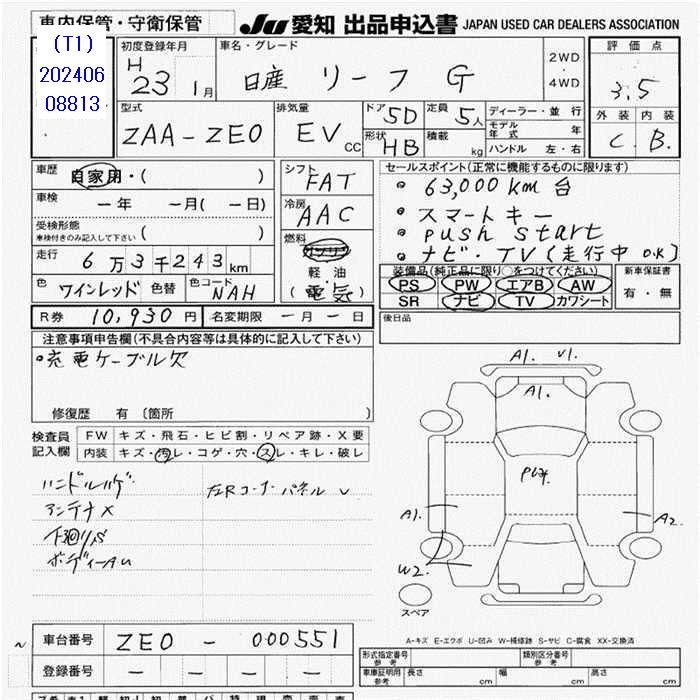 車内保管・守衛保管
JU 愛知 出品申込書 JAPAN USED CAR DEALERS ASSOCIATION
(T1)
202406
08813
初度登録年月
H
23 1月
車名・グレード
日産 リーフ G
2WD
・
4WD
評価点
3.5
外装 内装
C. B.
型式
ZAA-ZE0
排気量
EV CC
ドア 5D
定員 5人
形状 HB
積載 kg
ディーラー・並行
モデル年式 年
ハンドル 左・右
車歴
自家用・( )
車検 一年 一月(一日)
受検形態
車検付きのみ記入して下さい ( )
走行 6万3千243km
色 ワインレッド 色替 色コード NAH
シフト
FAT
冷房
AAC
燃料
ガソリン
軽油
(電気)
セールスポイント(正常に機能するものに限ります)
• 63,000km 台
• スマートキー
• push start
• ナビ・TV (走行中 O.K)
装備品(純正品に限り○をつけてください)
PS PW エアB AW
SR ナビ TV カワシート
新車保証書
有・無
R券 10,930円 名変期限 一月一日
後日品
注意事項申告欄(不具合内容等は具体的に記入して下さい)
• 充電ケーブル欠
修復歴 有〔箇所 〕
検査員
記入欄
FW キズ・飛石・ヒビ割・リペア跡・X要
内装 キズ・汚レ・コゲ・穴・スレ・キレ・破レ
ハンドルハゲ
アンテナX
下廻りS
ボディーAU
左Rコーナーパネル U
A1. U1.
A1.
A1.
A2.
W2.
スペア
A-キズ E-エクボ U-凹み W-補修跡 S-サビ C-腐食 XX-交換済
車台番号 ZE0 - 000551
登録番号 － － － －
形式指定番号
参考
類別区分番号
参考
車庫証明用
参考
長さ cm 幅 cm 高さ cm